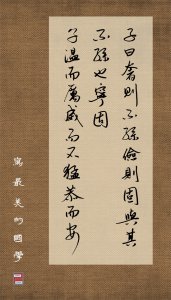 子曰奢则不孫儉则固與其
不孫也寧固
子溫而厲威而不猛恭而安
寫最美的國學